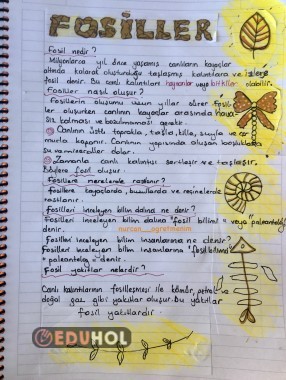 FOSİLLER
Fosil nedir?
Milyonlarca yıl önce yaşamış canlıların kayaçlar
altında kalarak oluşturduğu taşlaşmış kalıntılara ve izlere
fosil denir. Bu canlı kalıntıları hayvanlar veya bitkiler olabilir.
Fosiller nasıl oluşur?
Fosillerin oluşumu uzun yıllar sürer. Fosil-
ler oluşurken canlının kayaçlar arasında hava-
sız kalması ve bozulmaması gerekir.
Canlının üstü toprakla, taşla, külle, suyla ve ça-
murla kapanır. Canlının yapısında oluşan boşluklara
su ve mineraller dolar.
Zamanla canlı kalıntısı sertleşir ve taşlaşır.
Böylece fosil oluşur.
Fosillere nerelerde rastlanır?
Fosillere kayaçlarda, buzullarda ve reçinelerde
rastlanır.
Fosilleri inceleyen bilim dalına ne denir?
Fosilleri inceleyen bilim dalına "fosil bilimi" veya "paleontoloji"
denir.
nurcan__ogretmenim
Fosilleri inceleyen bilim insanlarına ne denir?
Fosilleri inceleyen bilim insanlarına "fosil bilimci"
"paleontolog" denir.
Fosil yakıtlar nelerdir?
Canlı kalıntılarının fosilleşmesi ile kömür, petrol ve
doğal gaz gibi yakıtlar oluşur. Bu yakıtlar
fosil yakıtlardır.
EDUHOL